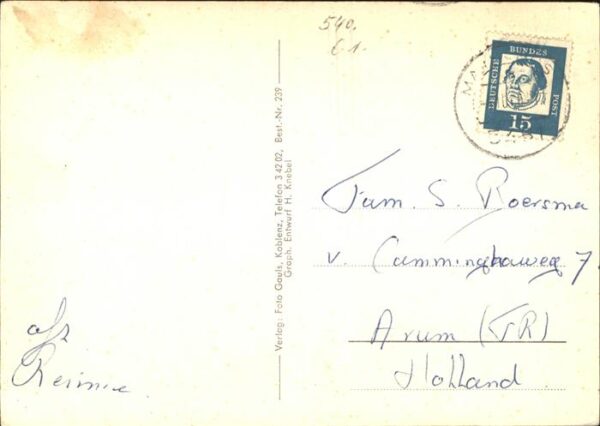 540.
€ 1.
DEUTSCHE
BUNDES
POST
15
Verlag: Foto Gauls, Koblenz, Telefon 3 42 02, Best.-Nr. 239
Graph. Entwurf H. Knebel
Fam. S. Boersma
v. Camminghaweg 7.
Arum (FR)
Holland
afz
Reimie